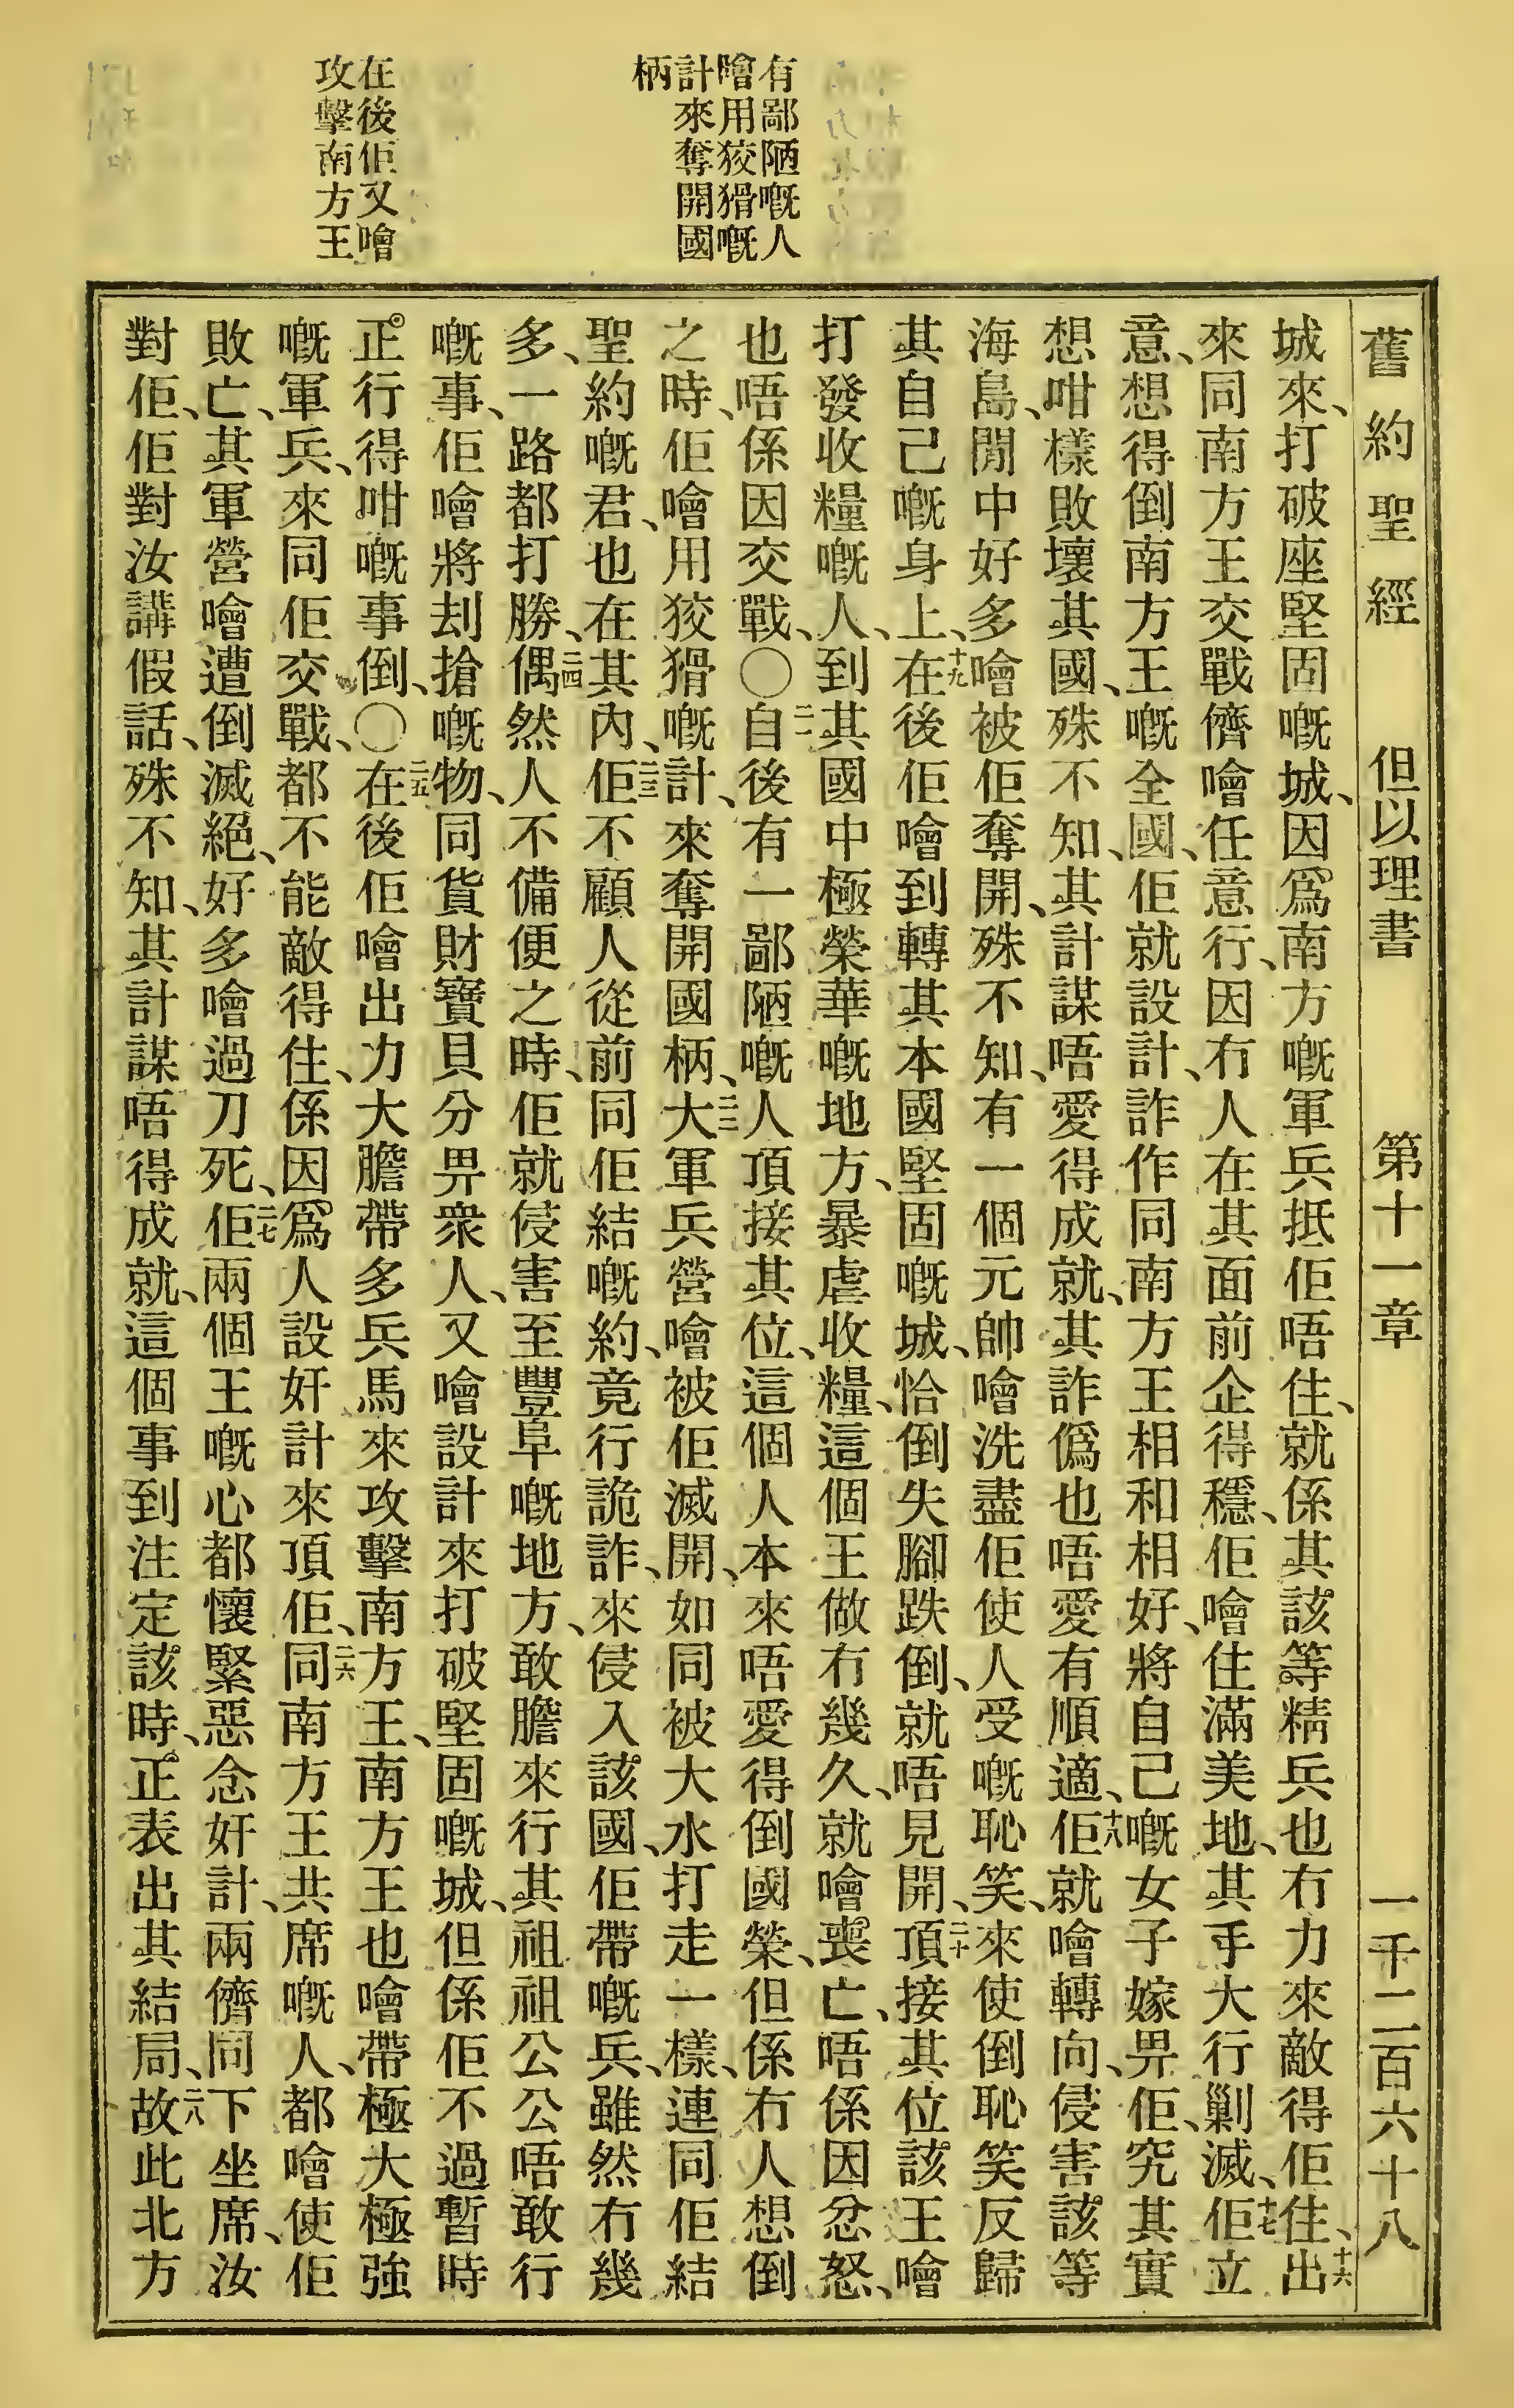 舊約聖經　但以理書　第十一章　一千二百六十八
有鄙陋嘅人
噲用狡猾嘅
計來奪開國
柄
在後佢又噲
攻擊南方王
城來、打破座堅固嘅城、因爲南方嘅軍兵抵佢唔住、就係其該等精兵也冇力來敵得佢住、十六出
來同南方王交戰儕噲任意行、因冇人在其面前企得穩、佢噲住滿美地、其手大行剿滅、十七佢立
意、想得倒南方王嘅全國、佢就設計、詐作同南方王相和相好、將自己嘅女子嫁畀佢、究其實
想咁樣敗壞其國、殊不知、其計謀唔愛得成就、其詐僞也唔愛有順適、十八佢就噲轉向、侵害該等
海島、閒中好多噲被佢奪開、殊不知、有一個元帥噲洗盡佢使人受嘅恥笑、來使倒恥笑反歸
其自己嘅身上、十九在後佢噲到轉其本國堅固嘅城、恰倒失腳跌倒、就唔見開、二十頂接其位該王噲
打發收糧嘅人、到其國中極榮華嘅地方、暴虐收糧、這個王做冇幾久、就噲喪亡、唔係因忿怒、
也唔係因交戰、〇二一自後有一鄙陋嘅人頂接其位、這個人本來唔愛得倒國榮、但係冇人想倒
之時、佢噲用狡猾嘅計、來奪開國柄、二二大軍兵營噲被佢滅開、如同被大水打走一樣、連同佢結
聖約嘅君、也在其內、二三佢不顧人從前同佢結嘅約、竟行詭詐、來侵入該國、佢帶嘅兵、雖然冇幾
多、一路都打勝、二四偶然人不備便之時、佢就侵害至豐阜嘅地方、敢膽來行其祖祖公公唔敢行
嘅事、佢噲將刦搶嘅物、同貨財寶貝分畀衆人、又噲設計來打破堅固嘅城、但係佢不過暫時
正行得咁嘅事倒、〇二五在後佢噲出力大膽帶多兵馬來攻擊南方王、南方王也噲帶極大極強
嘅軍兵、來同佢交戰、都不能敵得住、係因爲人設奸計來頂佢、二六同南方王共席嘅人、都噲使佢
敗亡、其軍營噲遭倒滅絕、好多噲過刀死、二七佢兩個王嘅心都懷緊惡念奸計、兩儕同下坐席、汝
對佢、佢對汝講假話、殊不知、其計謀唔得成就、這個事到注定該時、正表出其結局、二八故此北方